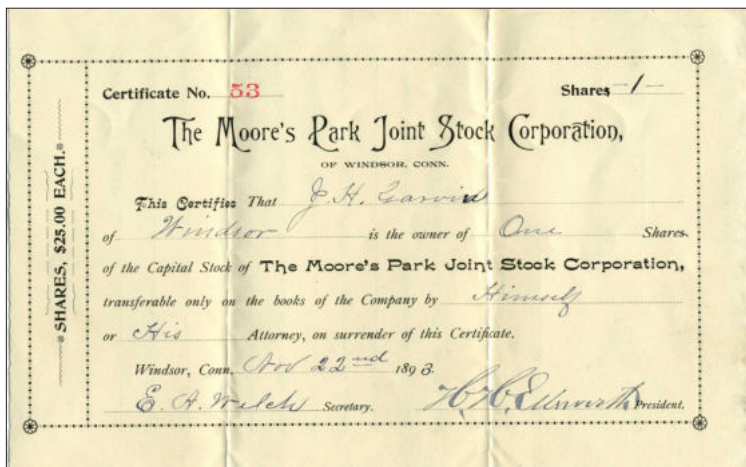 Certificate No. 53 Shares -1-
The Moore's Park Joint Stock Corporation,
OF WINDSOR, CONN.
This Certifies That J. H. Garvin
of Windsor is the owner of One Shares
of the Capital Stock of The Moore's Park Joint Stock Corporation,
transferable only on the books of the Company by Himself
or His Attorney, on surrender of this Certificate.
Windsor, Conn. Nov 22nd 1893.
E. A. Welch Secretary. H. H. Ellsworth President.
SHARES, $25.00 EACH.